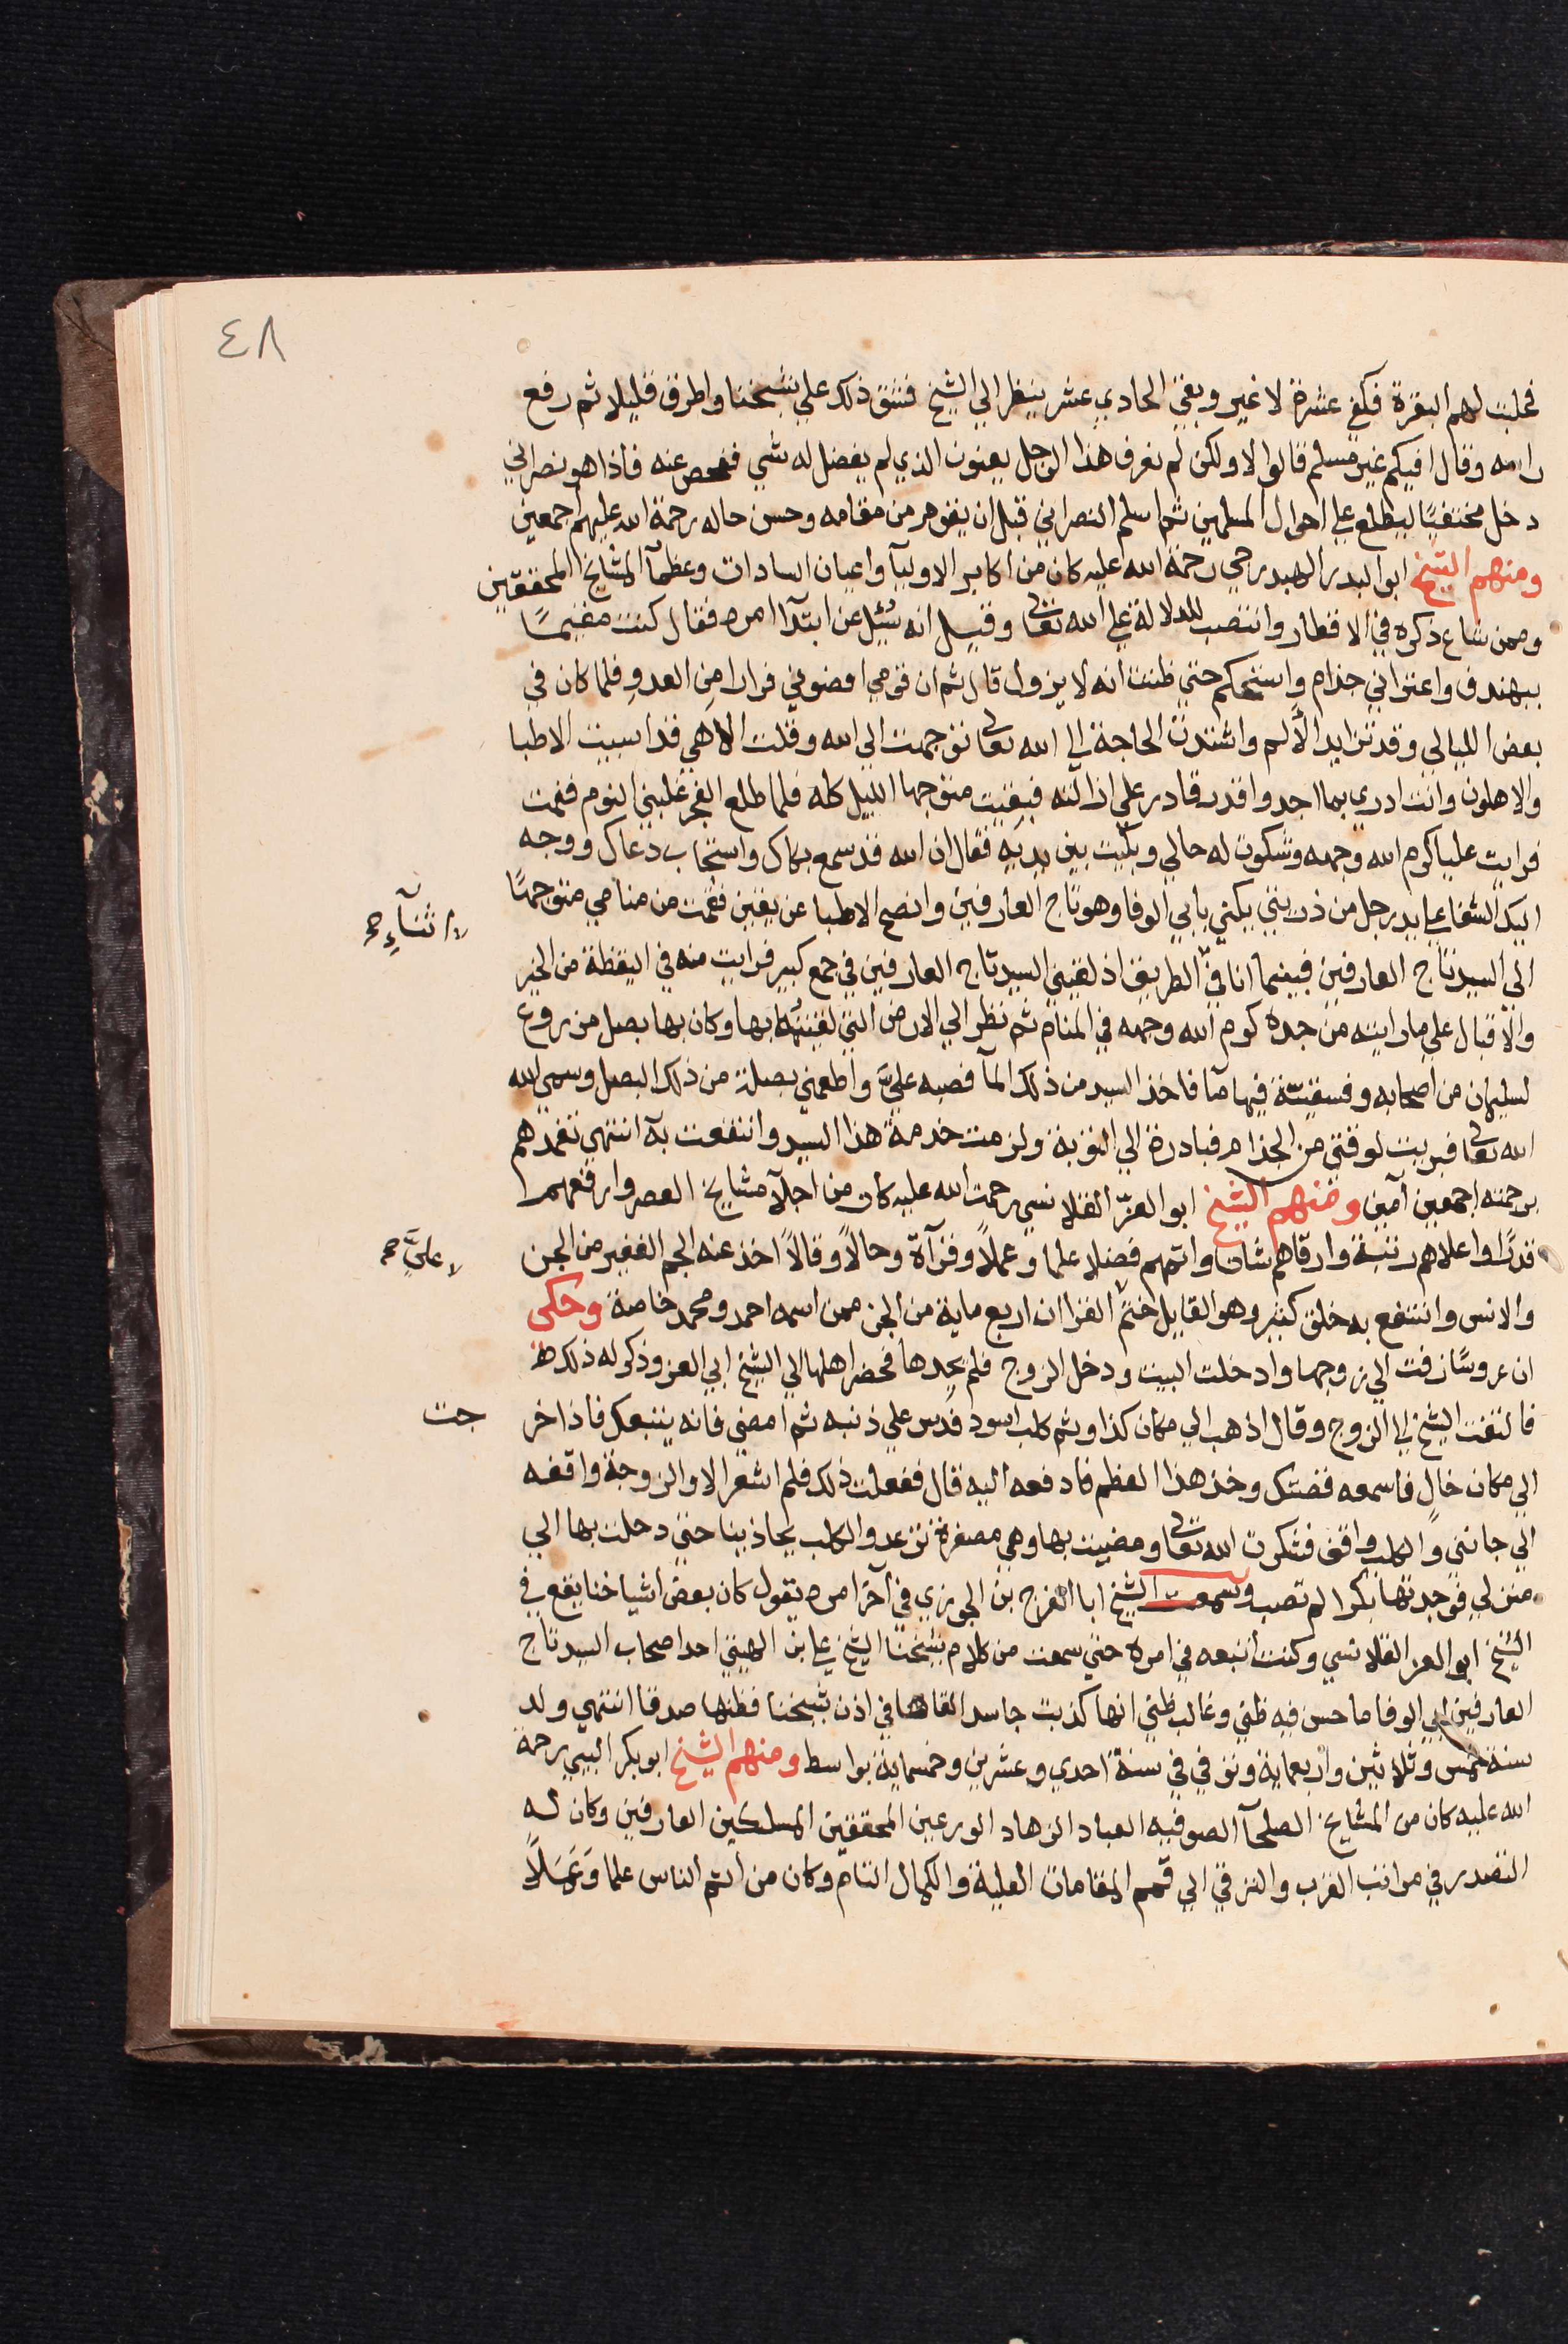 ٤٨
فحلبت لهم البقرة فكفي عشرة لا غير وبقي الحادي عشر ينظر الي الشيخ فشق ذلك علي شيخنا واطرق قليلا ثم رفع
راسه وقال افيكم غير مسلم قالوا لا ولكن لم نعرف هذا الرجل يعنون الذي لم يفضل له شي ففحص عنه فاذا هو نصراني
دخل مختفيًا ليطلع علي احوال المسلمين ثم اسلم النصراني قبل ان يقوم من مقامه وحسن حاله رحمة الله عليهم اجمعين
ومنهم الشيخ ابو البدر رحمة الله عليه كان من اكابر الاوليآ واعيان السادات وعظمآ المشايخ المحققين
وممن شاع ذكره في الاقطار وانتصب للدلالة علي الله تعالى وقيل انه سُئِل عن ابتدآ امره فقال كنت مقيمًا
ببهندف واعتراني جذام واستحكم حتي ظننت انه لا يزول قال ثم ان قومي افضوني فرارا مِن العدوِ فلما كان في
بعض الليالي وقد تزايد الألم واشتدت الحاجة الى الله تعالى توجهت الى الله وقلت الاهي قد اسببت الاطبا
والاهلون وانت ادري بما اجد واقدر قادر علي ازالته فبقيت متوجها الليل كله فلما طلع الفجر غلبني النوم فنمت
فرايت عليا كرم الله وجهه وشكوت له حالي وبكيت بين يديه فقال ان الله قد سمع بكاك واستجاب دعاك ووجه
اليك الشفا على يد رجل من ذريتي يكني بابي الوفا وهو تاج العارفين وانضح الاطبا عن يقين فقمت من منامي متوجهًا
الي السيد تاج العارفين فبينما انا في الطريق اذ لقيني السيد تاج العارفين في جمع كبير فرايت منه في اليقظة من الخير
اثنآءِ صح
والاقبال علي ما رايته من جده كرم الله وجهه في المنام ثم نظر الي الارض التي لقيتُه بها وكان بها بصل مزروع
لسليمان من اصحابه وفسقيّة فيها مآ فاخذ السيد من ذلك المآ فصبه عليَّ واطعمني بصلة من ذلك البصل وسمى الله
الله تعالى فبريت لوقتي من الجذام فبادرة الي التوبة ولزمت خدمة هذا السيد وانتفعت به انتهي تغمدهم
برحمته اجمعين آمين ومنهم الشيخ ابو العزّ القلانسي رحمت الله عليه كان من اجلآ مشايخ العصر وارفعهم
قدرًا واعلاهم رتبة وارقاهم شان واتمهم فضلا علما وعملاً وقرآة وحالاً وقالاً اخذ عنه الجم الغفير من الجن
عليَّ صح
والانس وانتفع به خلق كثير وهو القايل ختم القران اربع ماية من الجن ممن اسمه احمد ومحمد خاصة وحكى
ان عروسًا زفت الي زوجها وادخلت البيت ودخل الزوج فلم يجدها فحضر اهلها الي الشيخ ابي العز وذكر له ذلك
فالتفت الشيخ الى الزوج وقال اذهب الي مكان كذا وثم كلب اسود فدس علي ذنبه ثم امضي فانه يتبعك فاذا خر
جت
الي مكان خالٍ فاسمعه قصتك وخذ هذا العظم فادفعه اليه قال ففعلت ذلك فلم اشعر الا والزوجة واقفه
الي جانبي والكلب واقف فشكرت الله تعالى ومضيت بها وهي مصفرة ترعد والكلب يحاذينا حتي دخلت بها الي
منزلي فوجدتها بكرا لم تصب وسمعت الشيخ ابا الفرج بن الجوزي في آخر امره يقول كان بعض اشياخنا يقع في
الشيخ ابو العز القلانسي وكنت اتبعه في امره حتي سمعت من كلام شيخنا الشيخ على ابن الهيتي احد اصحاب السيد تاج
العارفين ابي الوفا ما حسن فيه ظني وغالب ظني انها كذبت حاسد القاها في اذن شيخنا فظنها صدقا انتهي ولد
سنة خمس وثلاثين واربعماية وتوفي في سنة احدي وعشرين وخمسماية بواسط ومنهم الشيخ ابو بكر رحمة
الله عليه كان من المشايخ الصلحآ الصوفيه العباد الزهاد الورعين المحققين المسلكين العارفين وكان له
التصدر في مراتب القرب والترقي الي قمم المقامات العلية والكمال التام وكان من اتم الناس علما وَعَمَلاً